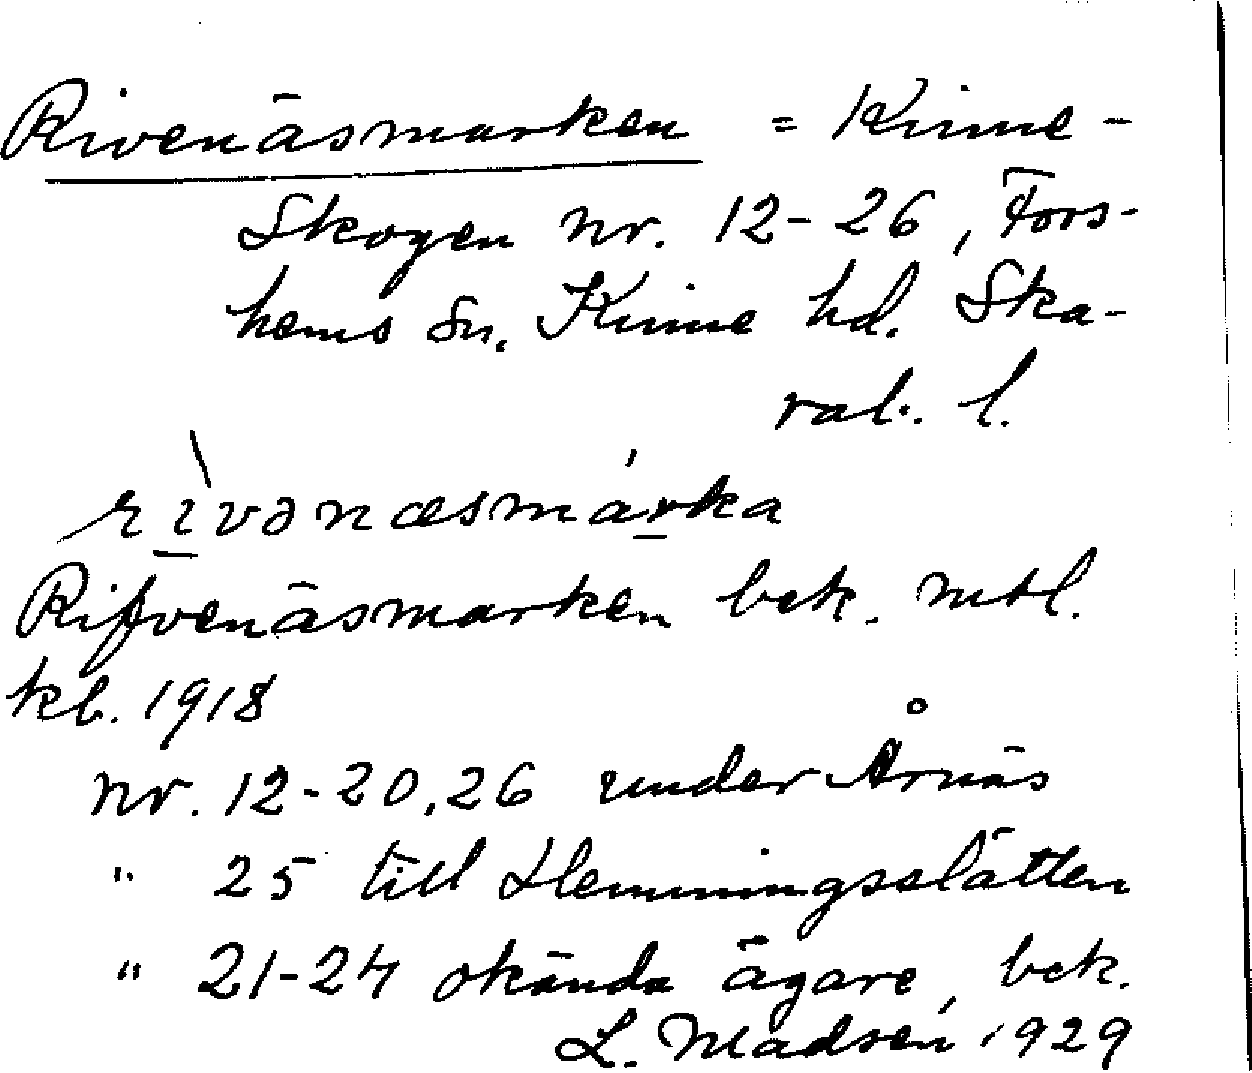 Rivenäsmarken = Kinne-
Skogen nr. 12-26, Fors-
hems sn. Kinne hd. Ska-
rab. l.
rìvənæsmárka
Rifvenäsmarken bek. mtl.
kb. 1918
nr. 12-20, 26 under Årnäs
" 25 till Hemmingsslätten
" 21-24 okända ägare, bek.
L. Madsén 1929